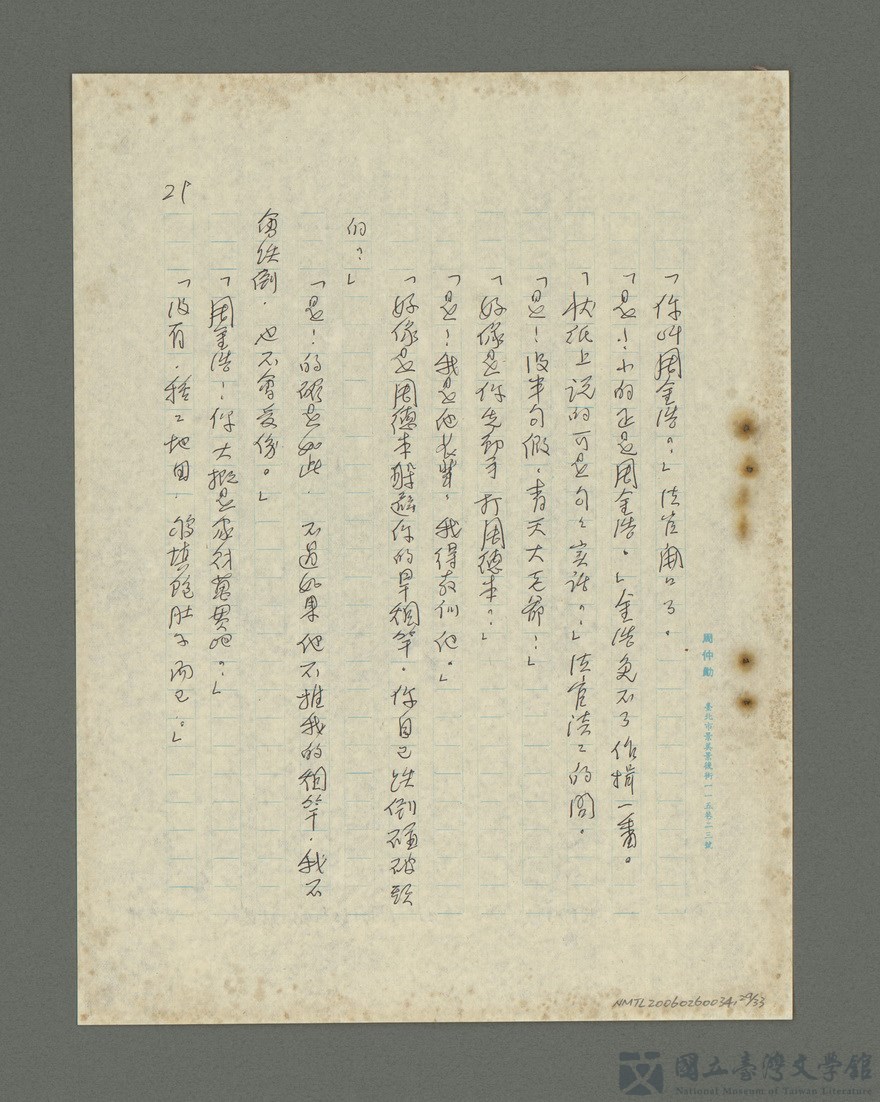 周仲勳
臺北市景美景後街一一五巷二三號
「你叫周金浩？」法官開口了。
「是！小的正是周金浩。」金浩免不了作揖一番。
「狀紙上說的可是句々實話？」法官淡々的問。
「是！沒半句假，青天大老爺！」
「好像是你先動手打周德本？」
「是！我是他長輩，我得教訓他。」
「好像是周德本躲避你的旱煙竿，你自己跌倒碰破頭
的？」
「是！的確是如此，不過如果他不推我的煙竿，我不
會跌倒，也不會受傷。」
「周金浩！你大概是家財萬貫吧？」
「沒有，種々地田，夠填飽肚子而已。」
29
NMTL20060260034, 29/33
國立臺灣文學館
National Museum of Taiwan Literature